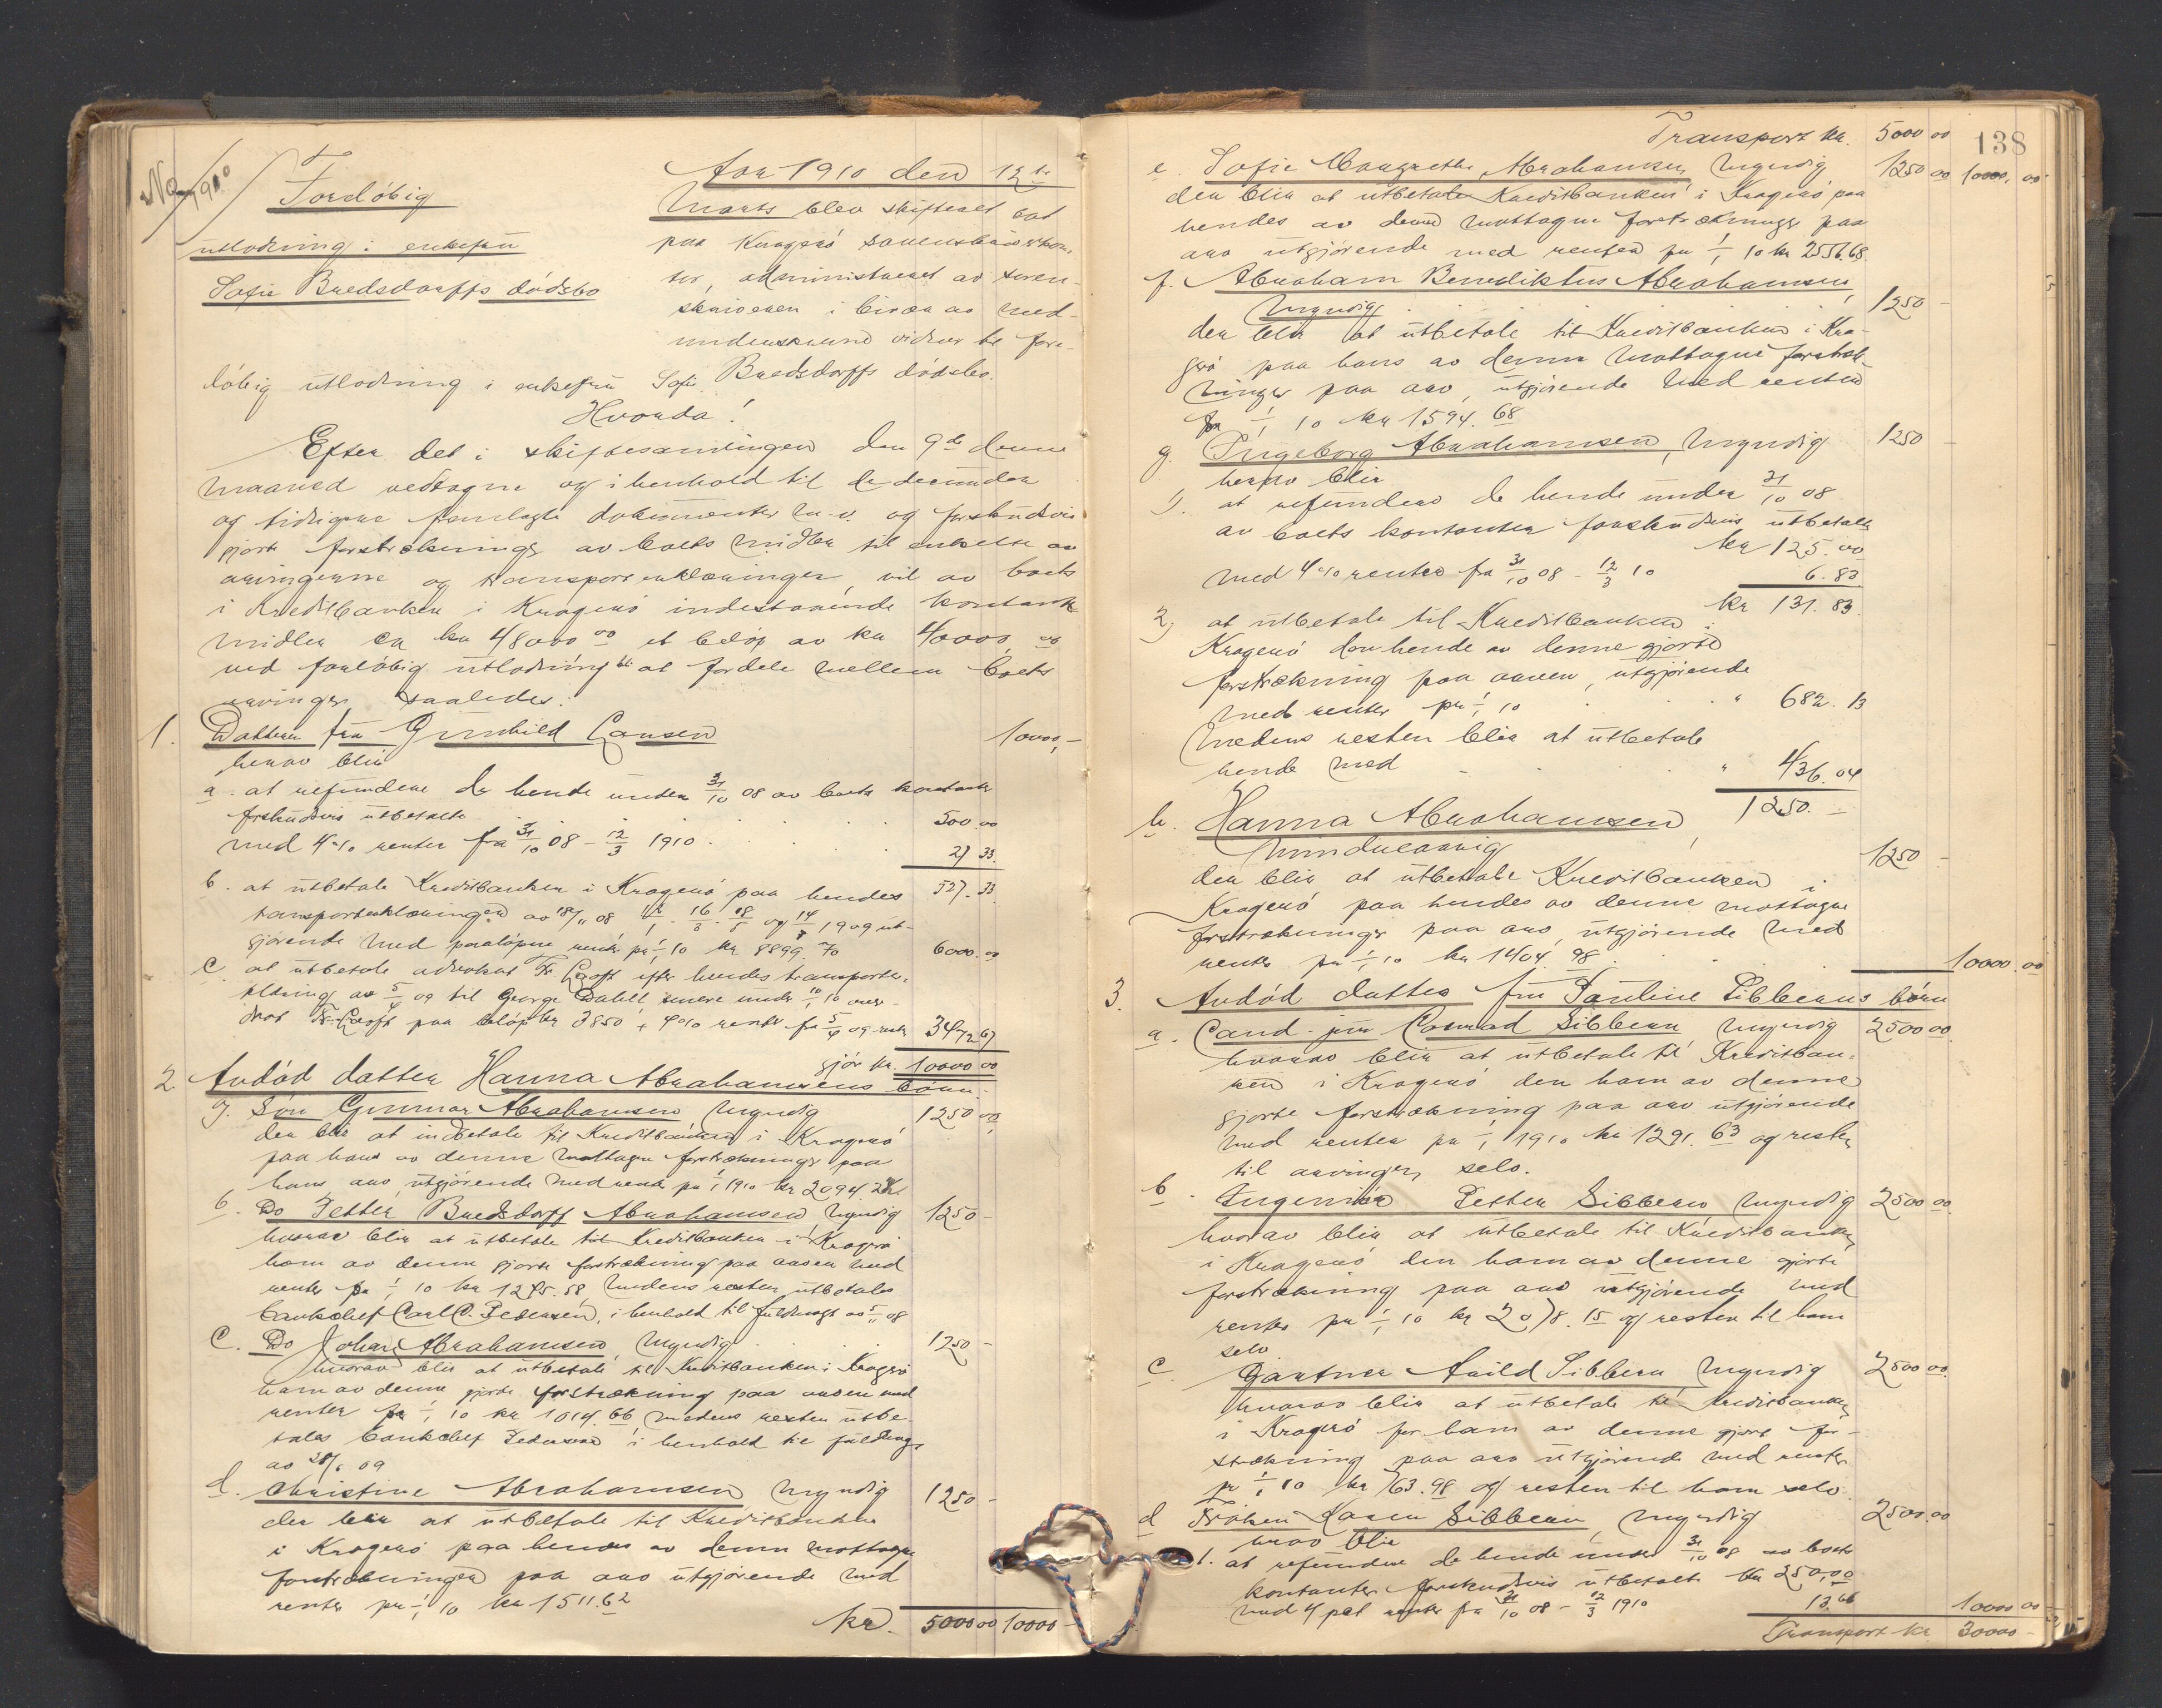 No /1910
Foreløbig
utlodning i enkefru
Sofie Bredsdorffs dødsbo
Aar 1910 den 12te
Marts blev skifteret sat
paa Kragerø sorenskriverkon-
tor, administreret av soren-
skriveren i bivær av med-
underskrevne vidner til fore-
løbig utlodning i enkefru Sofie Bredsdorffs dødsbo.
Hvorda!
Efter det i skiftesamlingen den 9de denne
maaned vedtagne og i henhold til de derunder
og tidligere fremlagte dokumenter m.v. og forskudsvis
gjorte forstrækninger av boets midler til enkelte av
arvingerne og transporterklæringer vil av boets
i Kreditbanken i Kragerø indestaaende kontante
midler ca kr 48000 00 et beløp av kr 40000,00
ved foreløbig utlodning bli at fordele mellem boets
arvinger saaledes:
1. Datteren fru Gunhild Larsen 10000,-
herav blir
a. at refundere de hende under 31/10 08 av boets kontante
forskudsvis utbetalte 500.00
med 4% renter fra 31/10 08 - 12/3 1910 27 33
527.33
b. at utbetale Kreditbanken i Kragerø paa hendes
transporterklæringer av 18/11 08 og 1909 ut-
gjørende med paaløpne renter pr 1/1 10 kr 8899.70 6000.00
c. at utbetale advokat Fr. efter hendes transporter-
klæring av 5/4 09 til George Dahll senere under 10/1 10 over-
drat paa beløp kr 3850 + 4% renter fra 5/4 09 3472 67
gjør kr. 10000 00
2. Avdød datter Hanna Abrahamsens børn.
a. Søn Gunnar Abrahamsen myndig 1250 00
der blir at indbetale til Kreditbanken i Kragerø
paa hans av denne mottagne forstrækninger paa
hans arv, utgjørende med renter pr 1/1 1910 kr 2094.
b. Do Petter Bredsdorff Abrahamsen, myndig 1250 -
hvorav blir at utbetale til Kreditbanken i Kragerø
ham av denne gjorte forstrækning paa arven med
renter pr 1/1 10 kr 1245.58, medens resten utbetales
banksjef Carl C. Pedersen, i henhold til fuldmagt av 5/11 08
c. Do Johan Abrahamsen, myndig 1250 -
hvorav blir at utbetale til Kreditbanken i Kragerø
ham av denne gjorte forstrækning paa arven med
renter pr 1/1 10 kr 1014.66 medens resten utbe-
tales banksjef Pedersen i henhold til fuldmagt
av 28/6 09
d. Christine Abrahamsen myndig 1250 -
der blir at utbetale til Kreditbanken
i Kragerø paa hendes av denne mottagne
forstrækninger paa arv utgjørende med
renter pr 1/1 10 kr 1511.62
kr. 5000 00 10000 -
138
Transport kr. 5000 00 10000,00
e. Sofie Margrethe Abrahamsen myndig 1250 00
der blir at utbetale Kreditbanken i Kragerø paa
hendes av denne mottagne forstrækninger paa
arv utgjørende med renter pr 1/1 10 kr 2556.68.
f. Abraham Benediktus Abrahamsen,
myndig 1250 -
der blir at utbetale til Kreditbanken i Kra-
gerø paa hans av denne mottagne forstræk-
ninger paa arv, utgjørende med renter
pr 1/1 10 kr 1594.68
g. Ingeborg Abrahamsen, myndig 1250 -
herav blir
1). at refundere de hende under 31/10 08
av boets kontanter forskudsvis utbetalte
kr 125.00
med 4% renter fra 31/10 08 - 12/3 10 6.83
kr 131.83.
2) at utbetale til Kreditbanken i
Kragerø den hende av denne gjorte
forstrækning paa arven, utgjørende
med renter pr 1/1 10 " 682.13
medens resten blir at utbetale
hende med " 436.04
1250.-
h. Hanna Abrahamsen,
mindreaarig 1250 -
der blir at utbetale Kreditbanken i
Kragerø paa hendes av denne mottagne
forstrækninger paa arv, utgjørende med
renter pr 1/1 10 kr 1404.98 10000.00
3. Avdød datter fru Pauline Sibberns børn
a. Cand. jur Conrad Sibbern myndig 2500 00
hvorav blir at utbetale til Kreditban-
ken i Kragerø den ham av denne
gjorte forstrækning paa arv utgjørende
med renter pr 1/1 1910 kr 1291.63 og resten
til arvingen selv.
b. Ingeniør Petter Sibbern myndig 2500 00
hvorav blir at utbetale til Kreditbanken
i Kragerø den ham av denne gjorte
forstrækning paa arv utgjørende med
renter pr 1/1 10 kr 2078.15 og resten til ham
selv.
c. Gartner Arild Sibbern, myndig 2500 00.
hvorav blir at utbetale til Kreditbanken
i Kragerø for ham av denne gjort for-
strækning paa arv utgjørende med renter
pr 1/1 10 kr 763.98 og resten til ham selv.
d Frøken Karen Sibbern, myndig 2500.00
herav blir
1. at refundere de hende under 31/10 08 av boets
kontanter forskudsvis utbetalte kr 250,00
med 4 pct renter fra 31/10 08 - 12/3 1910 13.66 10000 00
Transport kr. 30000 -